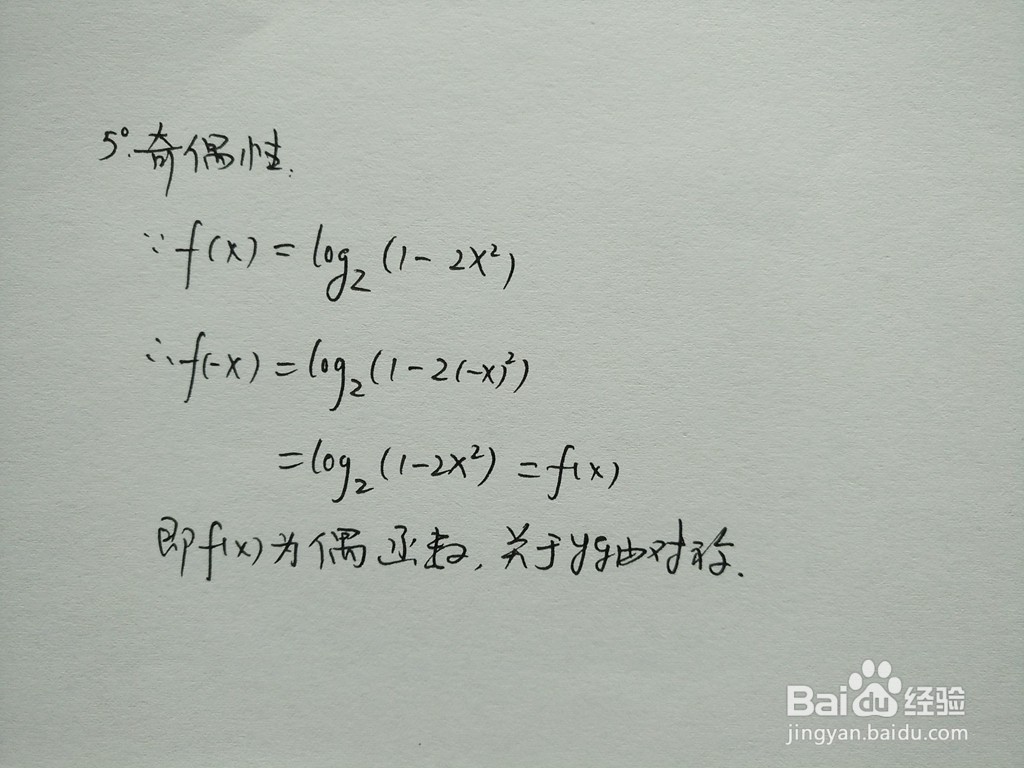 5°.奇偶性.
∵f(x)=log₂(1-2x²)
∴f(-x)=log₂(1-2(-x)²)
=log₂(1-2x²)=f(x)
即f(x)为偶函数,关于y轴对称.
Baidu经验
jingyan.baidu.com